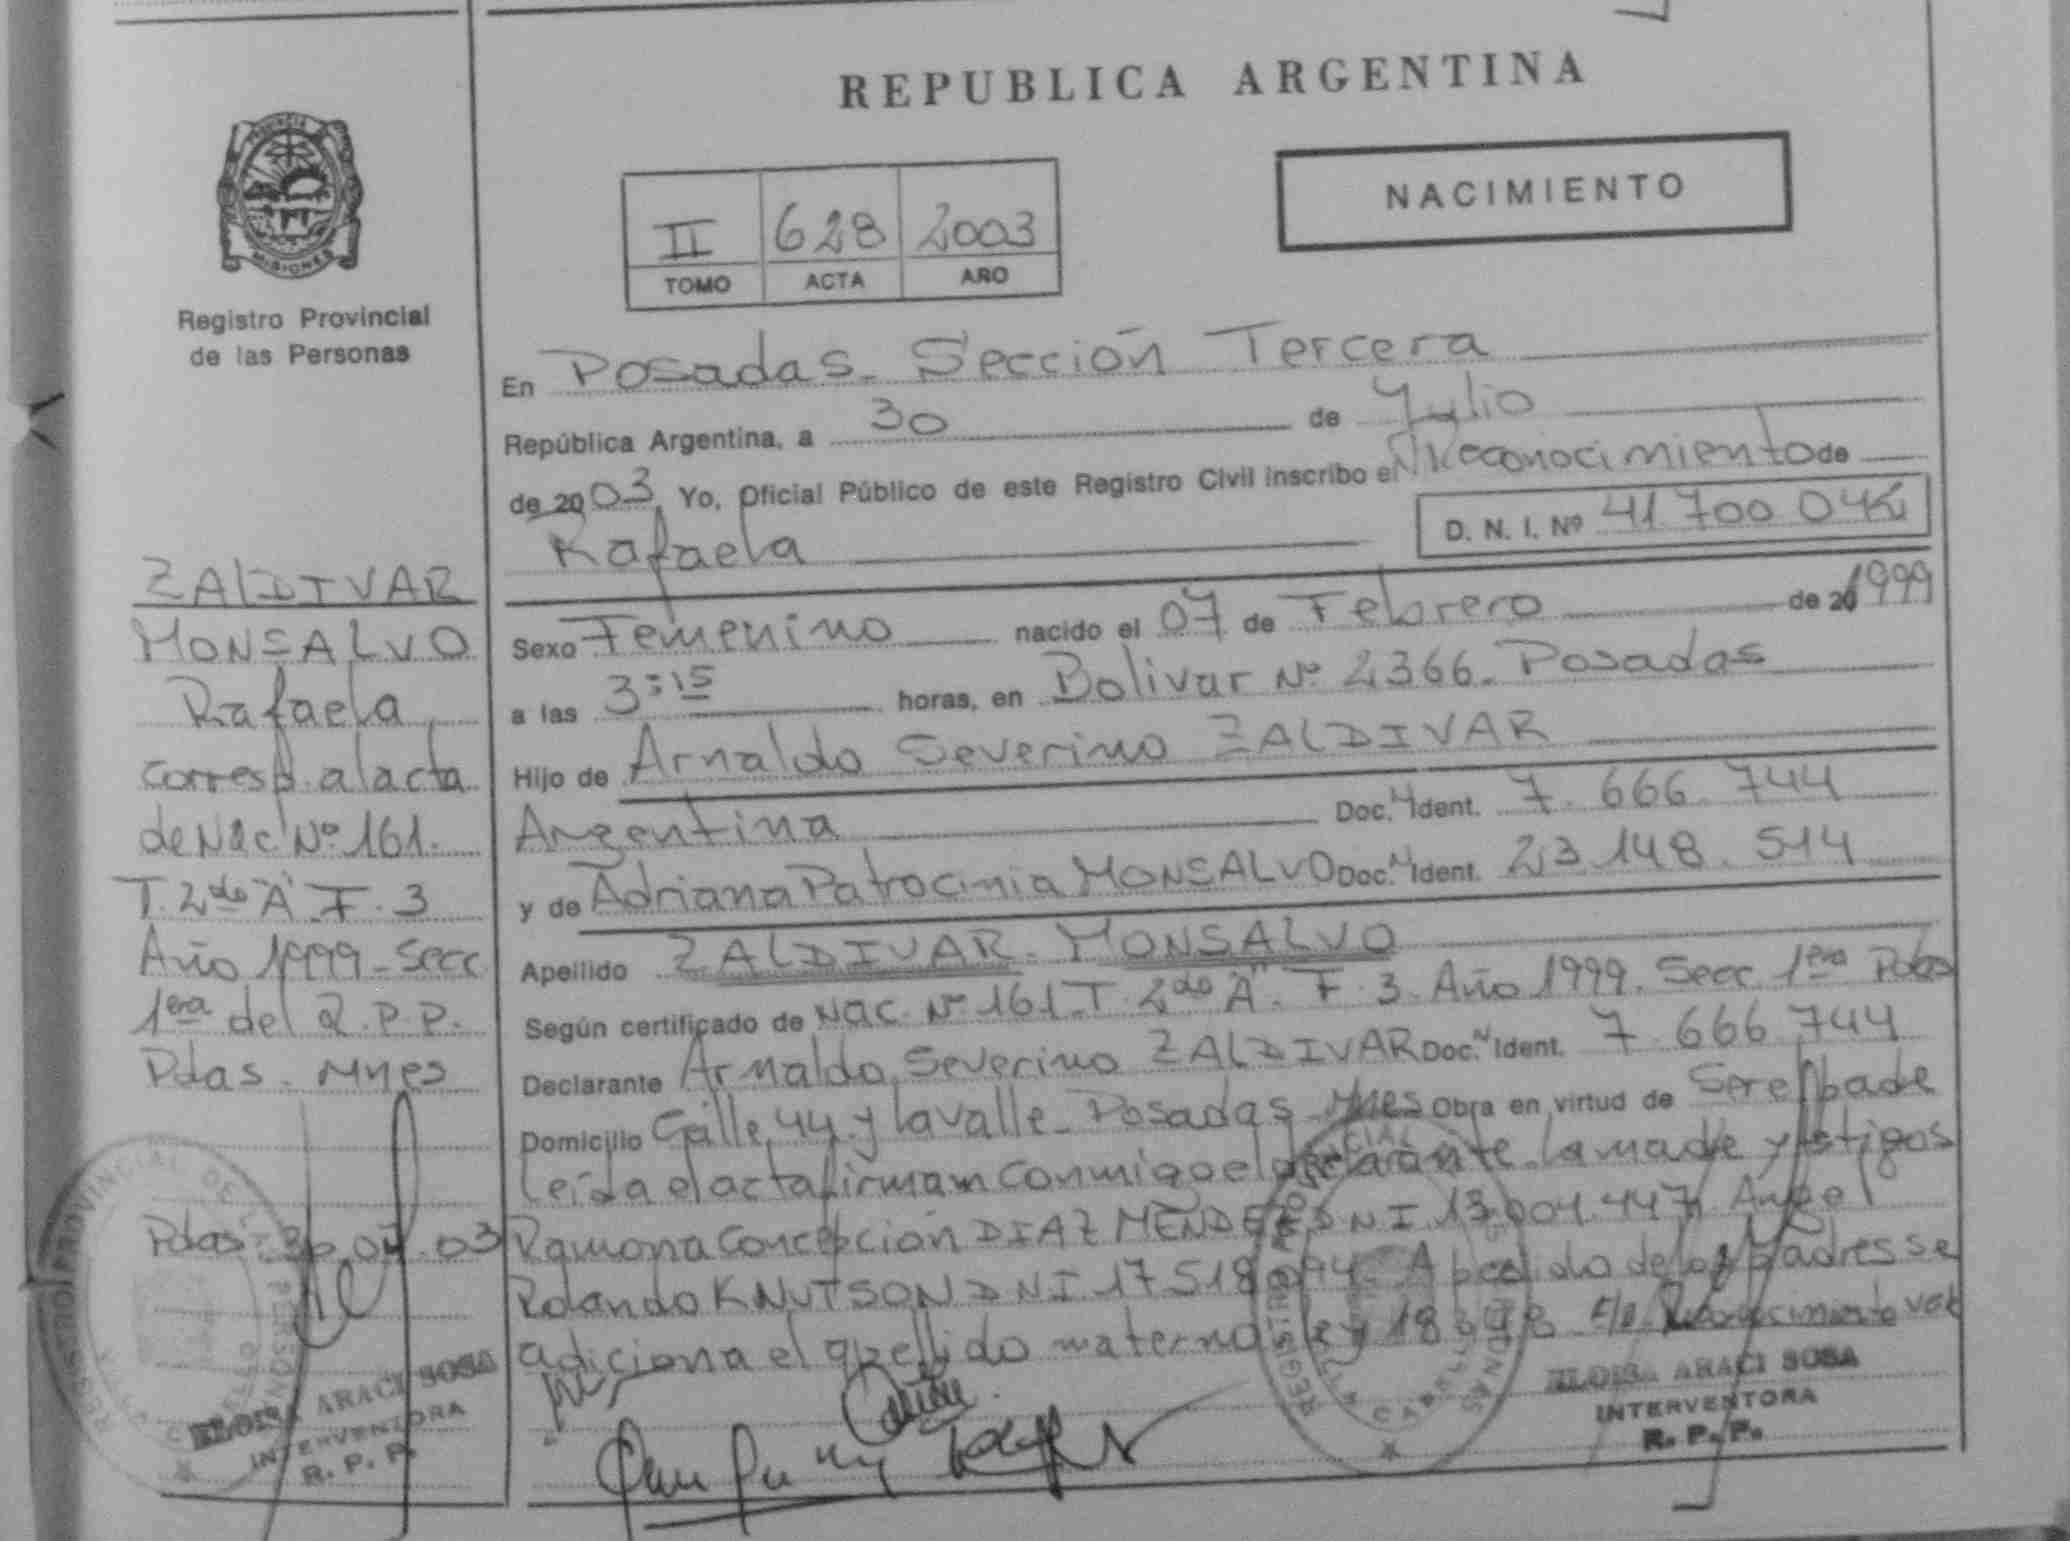 REPUBLICA ARGENTINA
NACIMIENTO
II 628 2003
TOMO ACTA AÑO
MISIONES
Registro Provincial
de las Personas
ZALDIVAR
MONSALVO
Rafaela
corresp. al acta
de Nac. Nº 161.
T. 2do "A" F. 3
Año 1999 - Secc
1era del R.P.P.
Pdas. Mnes
Pdas. 30.07.03
ELOISA ARACI SOSA
INTERVENTORA
R. P. P.
En Posadas - Sección Tercera
República Argentina, a 30 de Julio
de 2003 Yo, Oficial Público de este Registro Civil inscribo el Reconocimiento de
Rafaela D. N. I. Nº 41.700.04
Sexo Femenino nacido el 07 de Febrero de 20 1999
a las 3:15 horas, en Bolivar Nº 2366 - Posadas
Hijo de Arnaldo Severino ZALDIVAR
Argentina Doc. Ident. 7.666.744
y de Adriana Patrocinia MONSALVO Doc. Ident. 23.148.514
Apellido ZALDIVAR MONSALVO
Según certificado de Nac. Nº 161 - T. 2do "A". F. 3. Año 1999. Secc. 1era Pdas
Declarante Arnaldo Severino ZALDIVAR Doc. Ident. 7.666.744
Domicilio Calle 44 y Lavalle - Posadas - Mnes Obra en virtud de Ser el padre
Leída el acta firman conmigo el declarante, la madre y testigos
Ramona Concepción DIAZ MENDEZ DNI 13.004.447, Angel
Rolando KNUTSON DNI 17.518.094. A pedido de los padres se
adiciona el apellido materno ley 18248. E/l Reconocimiento vale
ELOISA ARACI SOSA
INTERVENTORA
R. P. P.